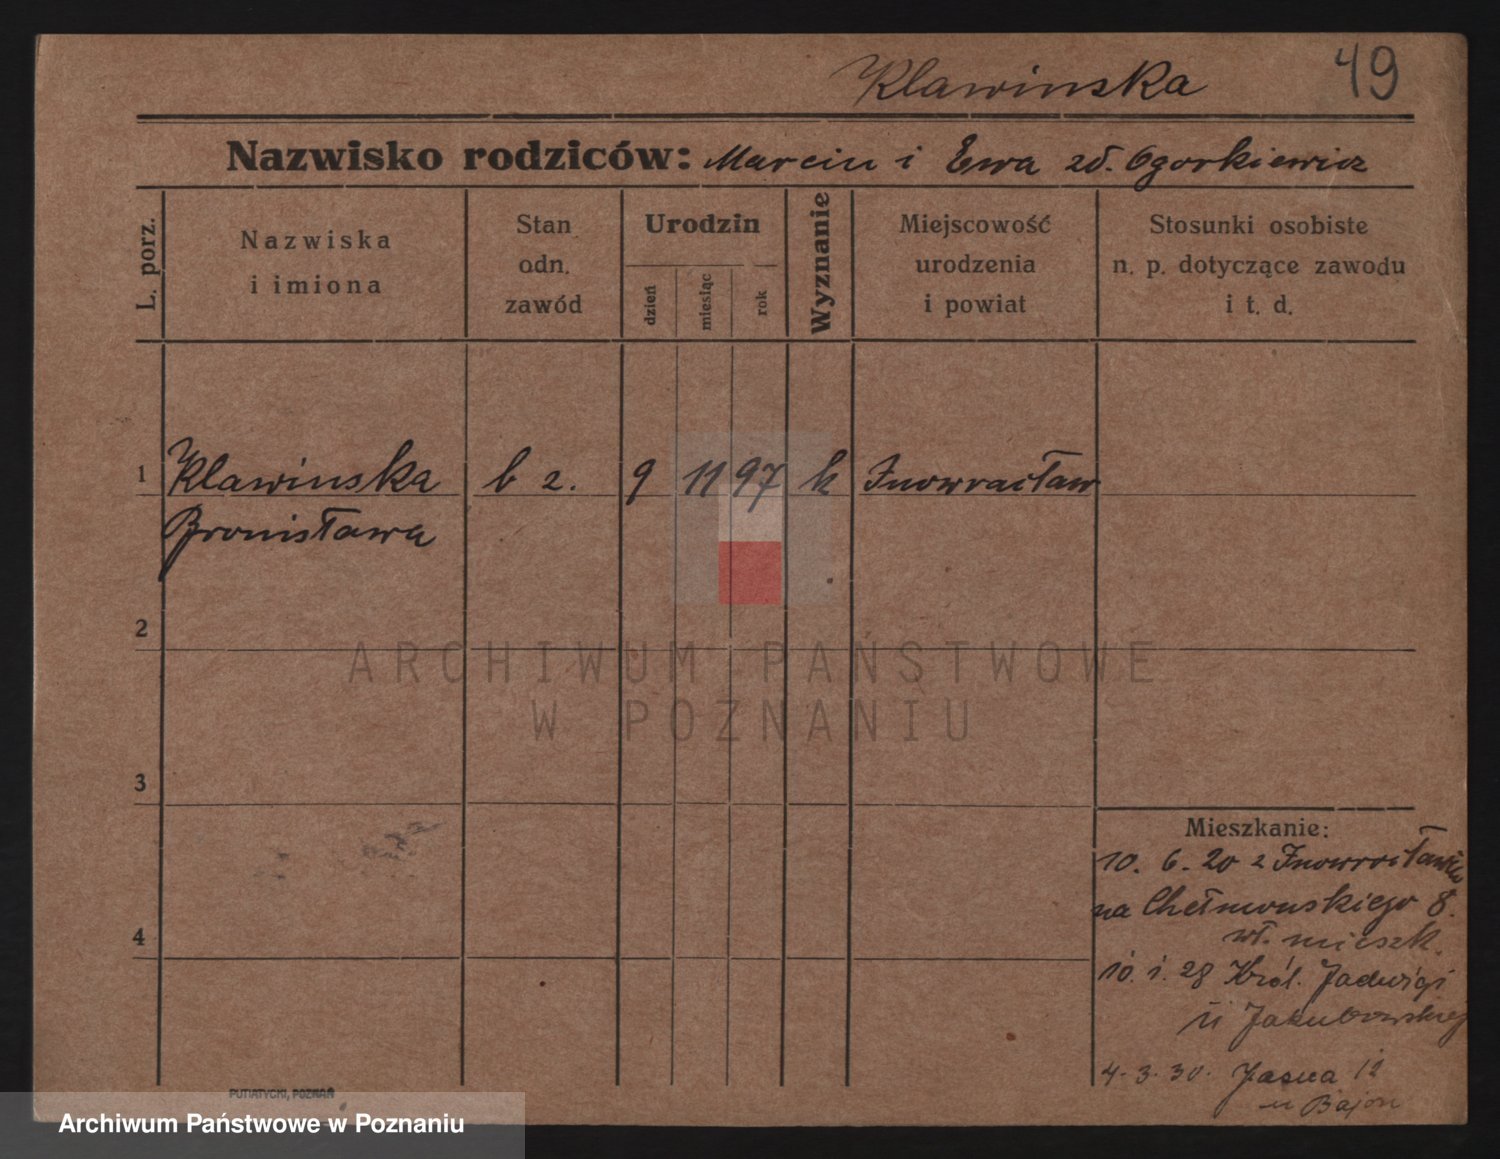 Klawinska
49
Nazwisko rodziców: Marcin i Ewa zd. Ogorkiewicz
L. porz.
Nazwiska
i imiona
Stan
odn.
zawód
Urodzin
dzień
miesiąc
rok
Wyznanie
Miejscowość
urodzenia
i powiat
Stosunki osobiste
n. p. dotyczące zawodu
i t. d.
1 Klawinska b z. 9 11 97 k Inowracław
Bronisława
2
3
4
Mieszkanie:
10. 6. 20 z Inowrocławia
na Chełmonskiego 8.
wł. mieszk.
10. 1. 28 Król. Jadwigi
u Jakubowskiej
4. 3. 30. Jasna 12
u Bajon
PUTIATYCKI, POZNAŃ
ARCHIWUM PAŃSTWOWE
W POZNANIU
Archiwum Państwowe w Poznaniu